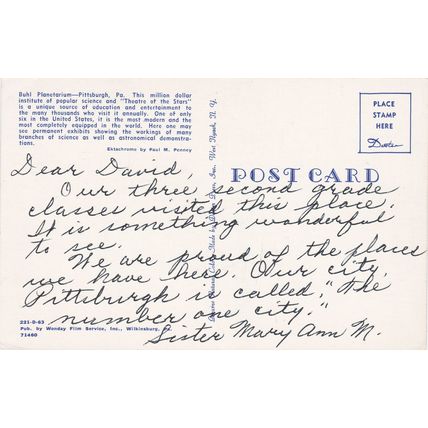 Buhl Planetarium—Pittsburgh, Pa. This million dollar
institute of popular science and "Theatre of the Stars"
is a unique source of education and entertainment to
the many thousands who visit it annually. One of only
six in the United States, it is the most modern and the
most completely equipped in the world. Here one may
see permanent exhibits showing the workings of many
branches of science as well as astronomical demonstra-
tions.
Ektachrome by Paul M. Penney
PLACE
STAMP
HERE
Dexter
POST CARD
Dear David,
Our three second grade
classes visited this place.
It is something wonderful
to see.
We are proud of the places
we have here. Our city,
Pittsburgh is called, "The
number one city."
Sister Mary Ann M.
Made by Dexter Press, Inc., West Nyack, N. Y.
221-D-63
Pub. by Wonday Film Service, Inc., Wilkinsburg,
71460